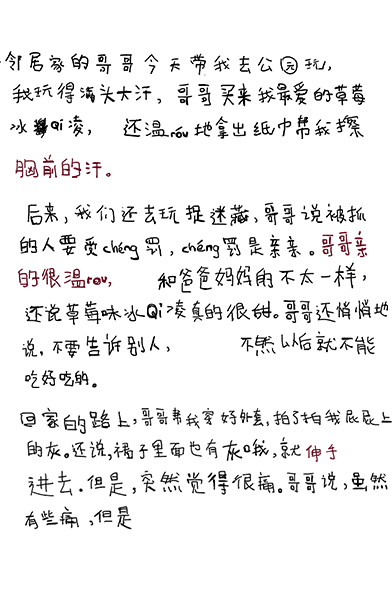 邻居家的哥哥今天带我去公园玩,
我玩得满头大汗，哥哥买来我最爱的草莓
冰Qi凌， 还温róu地拿出纸巾帮我擦
胸前的汗。
后来,我们还去玩捉迷藏,哥哥说被抓
的人要受chéng罚,chéng罚是亲亲。哥哥亲
的很温rou, 和爸爸妈妈的不太一样,
还说草莓味冰Qi凌真的很甜。哥哥还悄悄地
说,不要告诉别人, 不然以后就不能
吃好吃的。
回家的路上,哥哥帮我穿好外套,拍了拍我屁屁上
的灰。还说,裙子里面也有灰哦,就伸手
进去.但是,突然觉得很痛。哥哥说,虽然
有些痛,但是